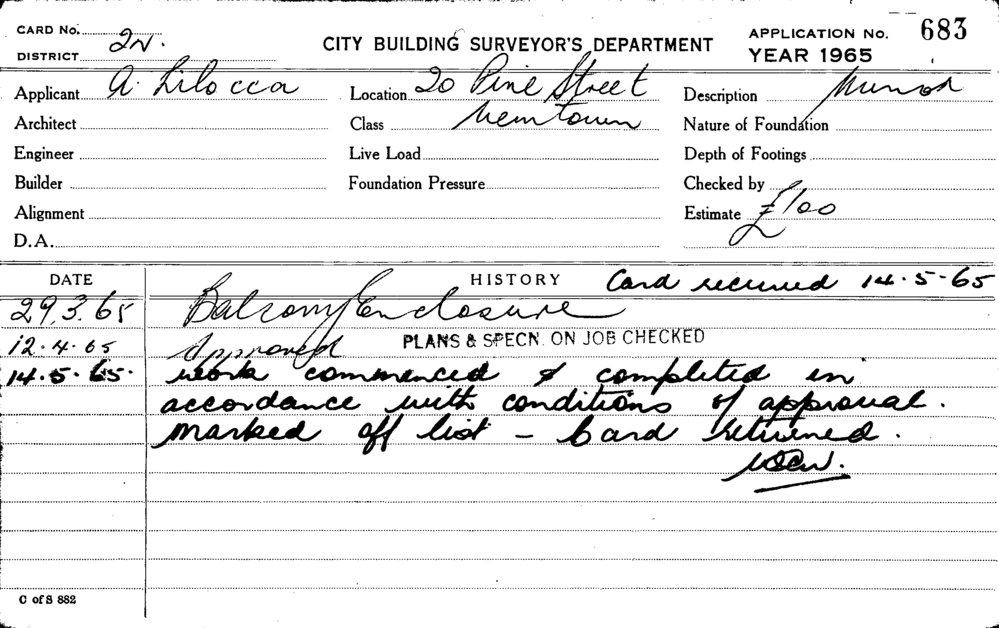 CARD No. 2N.
DISTRICT
CITY BUILDING SURVEYOR'S DEPARTMENT
APPLICATION No. 683
YEAR 1965
Applicant A. Lilocca
Location 20 Pine Street
Description Minor
Architect
Class Newtown
Nature of Foundation
Engineer
Live Load
Depth of Footings
Builder
Foundation Pressure
Checked by
Alignment
Estimate £100
D.A.
DATE
HISTORY Card received 14.5.65
29.3.65 Balcony Enclosure
12.4.65 Approved PLANS & SPECN. ON JOB CHECKED
14.5.65. work commenced & completed in
accordance with conditions of approval.
marked off list - Card returned.
C of S 882